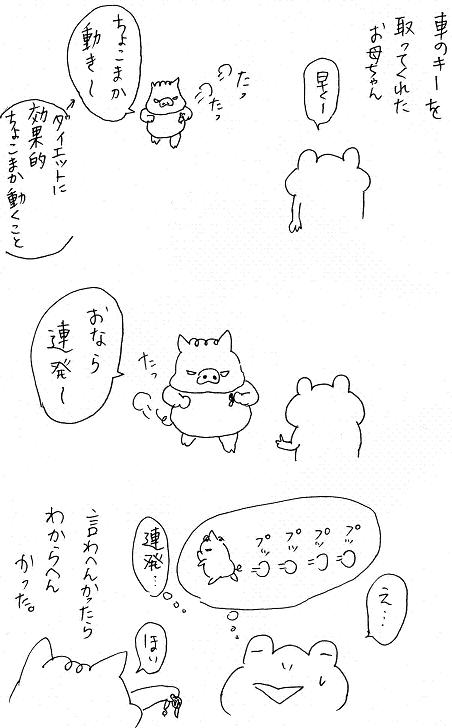 車のキーを
取ってくれた
お母ちゃん
早くー
たっ
たっ
ちょこまか
動き〜
ダイエットに
効果的
ちょこまか動くこと
たっ
おなら
連発〜
え…
プッ
プッ
プッ
プッ
連発…
ほい
言わへんかったら
わからへん
かった。